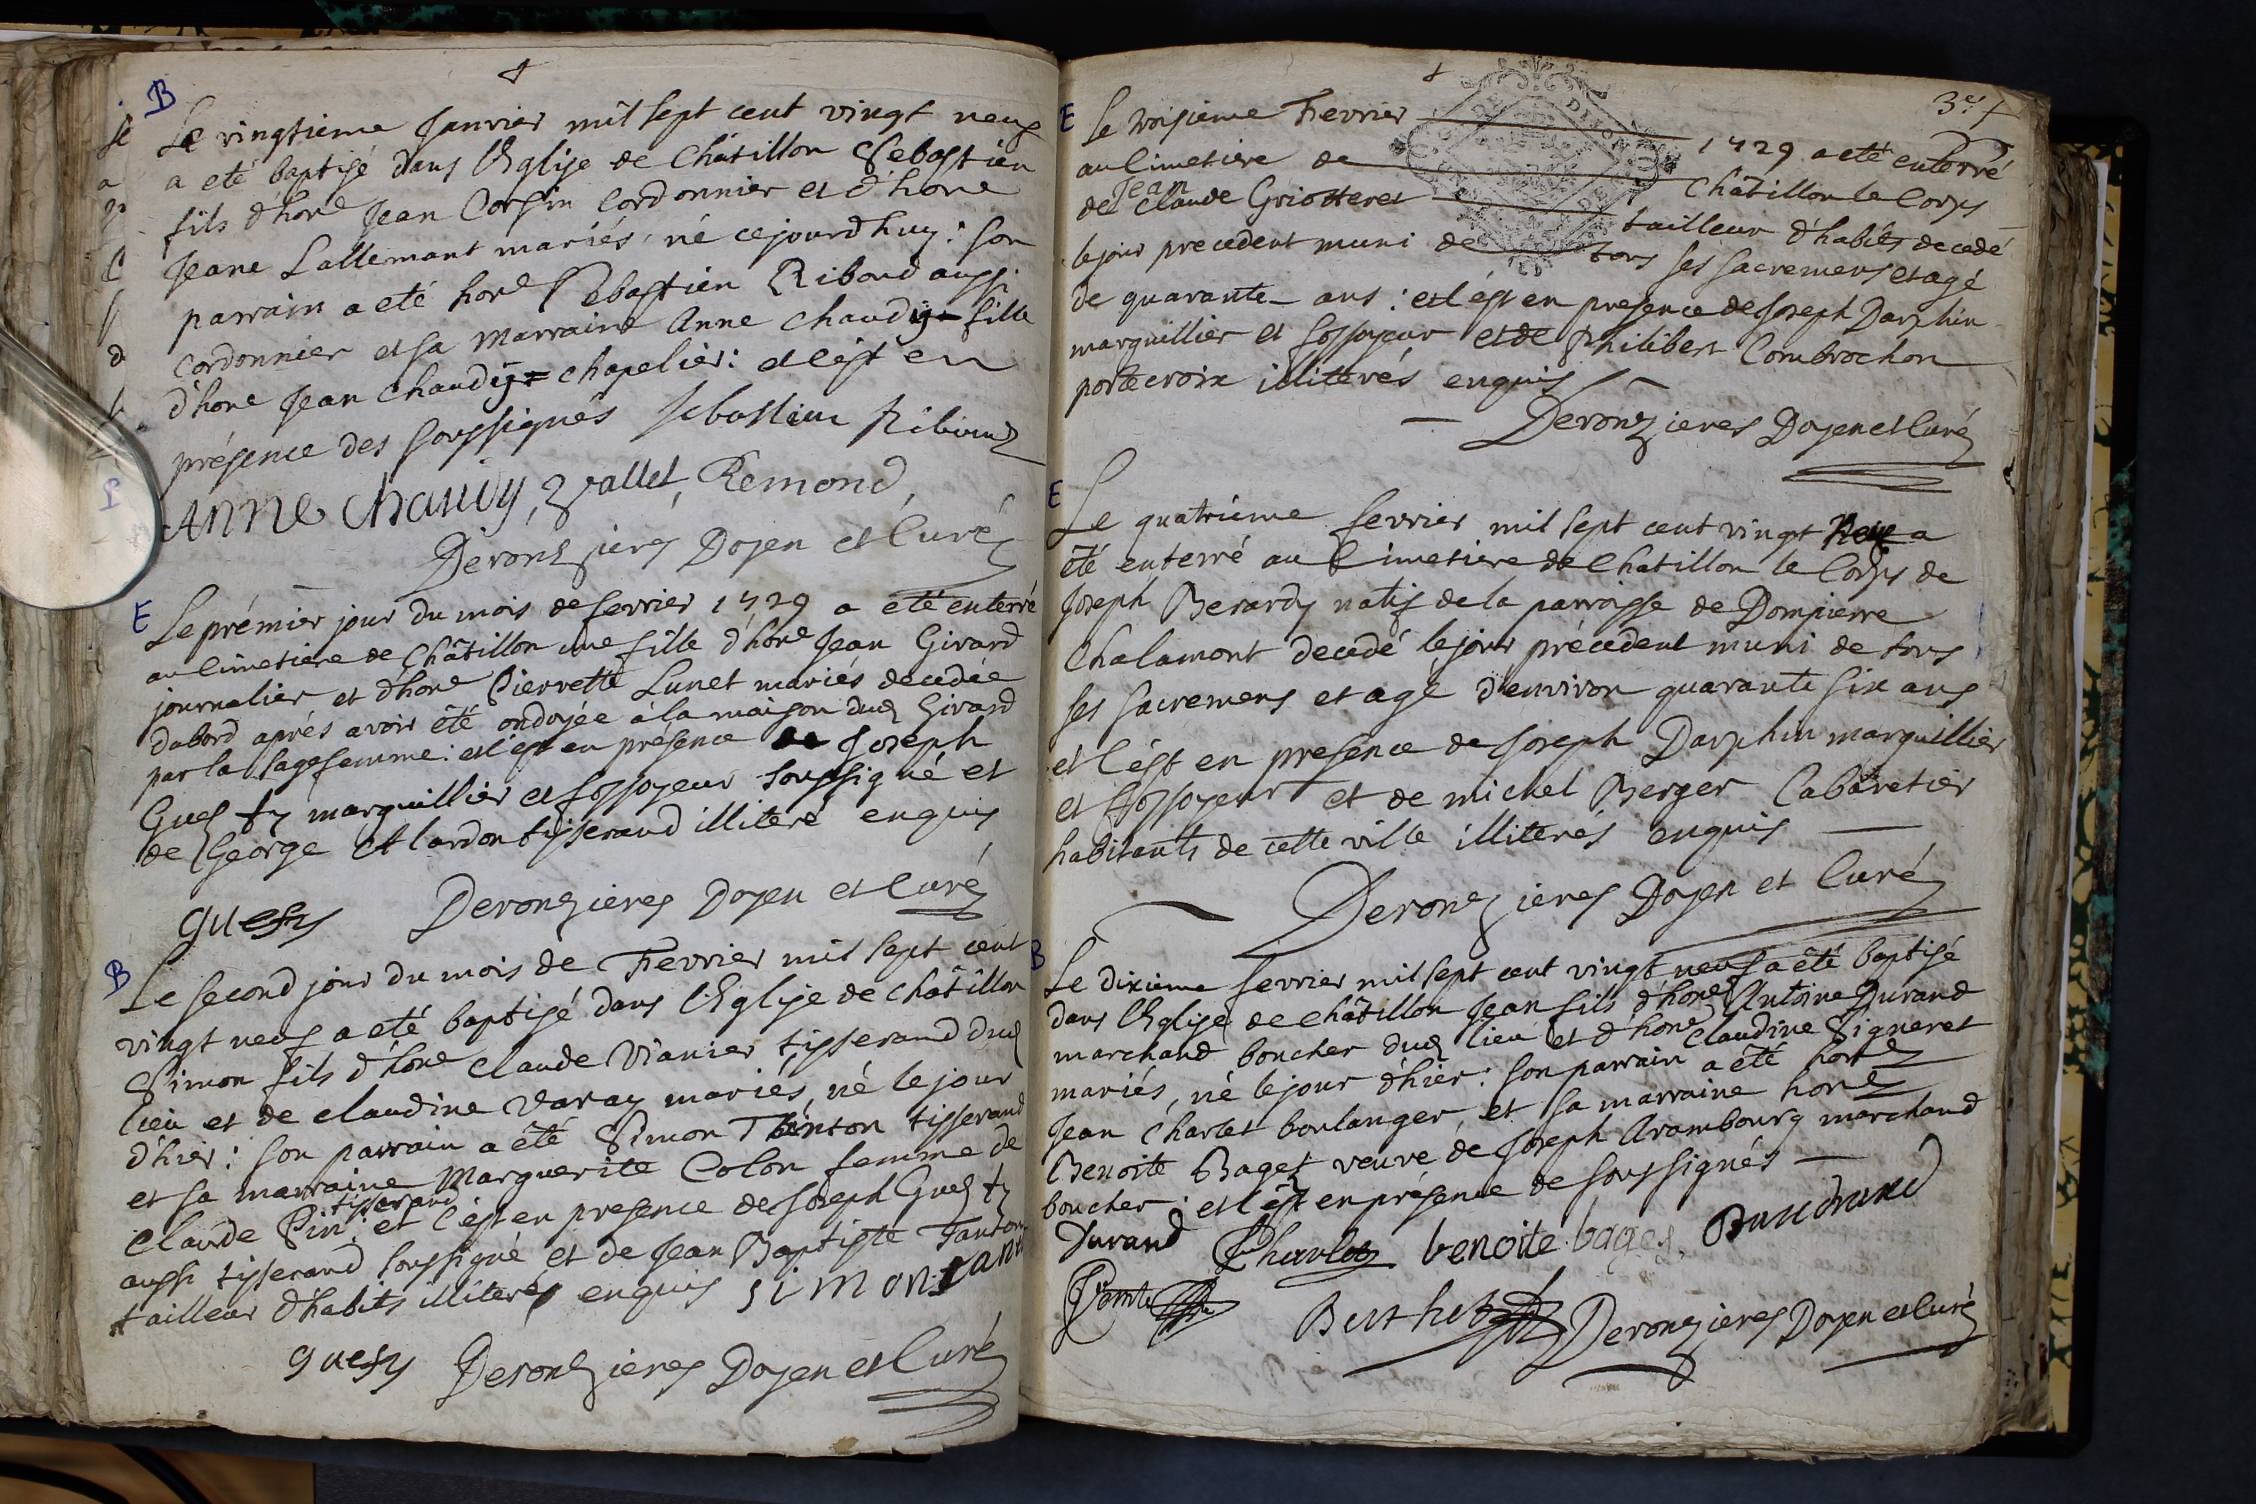 B
Le vingtieme Janvier mil sept cent vingt neuf
a eté baptisé dans l'Eglise de Châtillon Sebastien
fils d'hone Jean Corsin Cordonnier et d'hone
Jeane Lallemant mariés, né cejourdhuy: son
parrain a eté hone Sebastien Riboud aussi
cordonnier et sa Marraine Anne Chaudy fille
d'hone Jean Chaudy chapelier: et c'est en
présence des soussignés sebastien Riboud
Anne Chaudy, Vallet, Remond,
Deronzieres Doyen et Curé
E
Le prémier jour du mois de fevrier 1729 a eté enterré
au Cimetiere de Châtillon une fille d'hone Jean Girard
journalier et d'hone Pierrette Lunet mariés decedée
dabord aprés avoir été ondoyée à la maison dud Girard
par la sage femme: et c'est en présence de Joseph
Gues ty marguillier et fossoyeur soussigné et
de George Alardon tisserand illiteré enquis
guesty Deronzieres Doyen et Curé
B
Le second jour du mois de Fevrier mil sept cent
vingt neuf a eté baptisé dans l'Eglise de Châtillon
Simon fils d'hone Claude Vianier tisserand dud
lieu et de claudine Varay mariés, né le jour
d'hier: son parrain a été Simon tisserand
et sa marraine Marguerite Colon femme de
tisserand
Claude Pin: et c'est en presence de Joseph Gues ty
aussi tisserand soussigné et de Jean Baptiste
tailleur d'habits illiterés enquis simon
guesty Deronzieres Doyen et Curé
3e f
E
Le troisieme Fevrier 1729 a eté enterré
au Cimetiere de Châtillon le Corps
Jean
de Claude Griotteret tailleur d'habits decedé
le jour precedent muni de tous ses sacremens et agé
de quarante ans: et c'est en presence de Joseph Darphin
marguillier et fossoyeur et de Philibert Combrochon
porte croix illiterés enquis
Deronzieres Doyen et Curé
E
Le quatrieme fevrier mil sept cent vingt neuf a
été enterré au Cimetiere de Chatillon le Corps de
Joseph Berardy natif de la parroisse de Dompierre
Chalamont decedé le jour précedent muni de tous
ses sacremens et agé d'environ quarante six ans
et c'est en presence de Joseph Darphin marguillier
et fossoyeur et de michel Berger Cabaretier
habitants de cette ville illiterés enquis
Deronzieres Doyen et Curé
B
Le dixieme fevrier mil sept cent vingt neuf a été baptisé
dans l'Eglise de châtillon Jean fils d'hone Antoine Durand
marchand boucher dud lieu et d'hone Claudine Signeret
mariés, né le jour d'hier: son parrain a été hone
Jean Charlet boulanger et sa marraine hone
Benoite Baget veuve de Joseph Arambourg marchand
boucher: et c'est en présence de soussignés
Durand Charlet benoite baget
Berthet Deronzieres Doyen et Curé